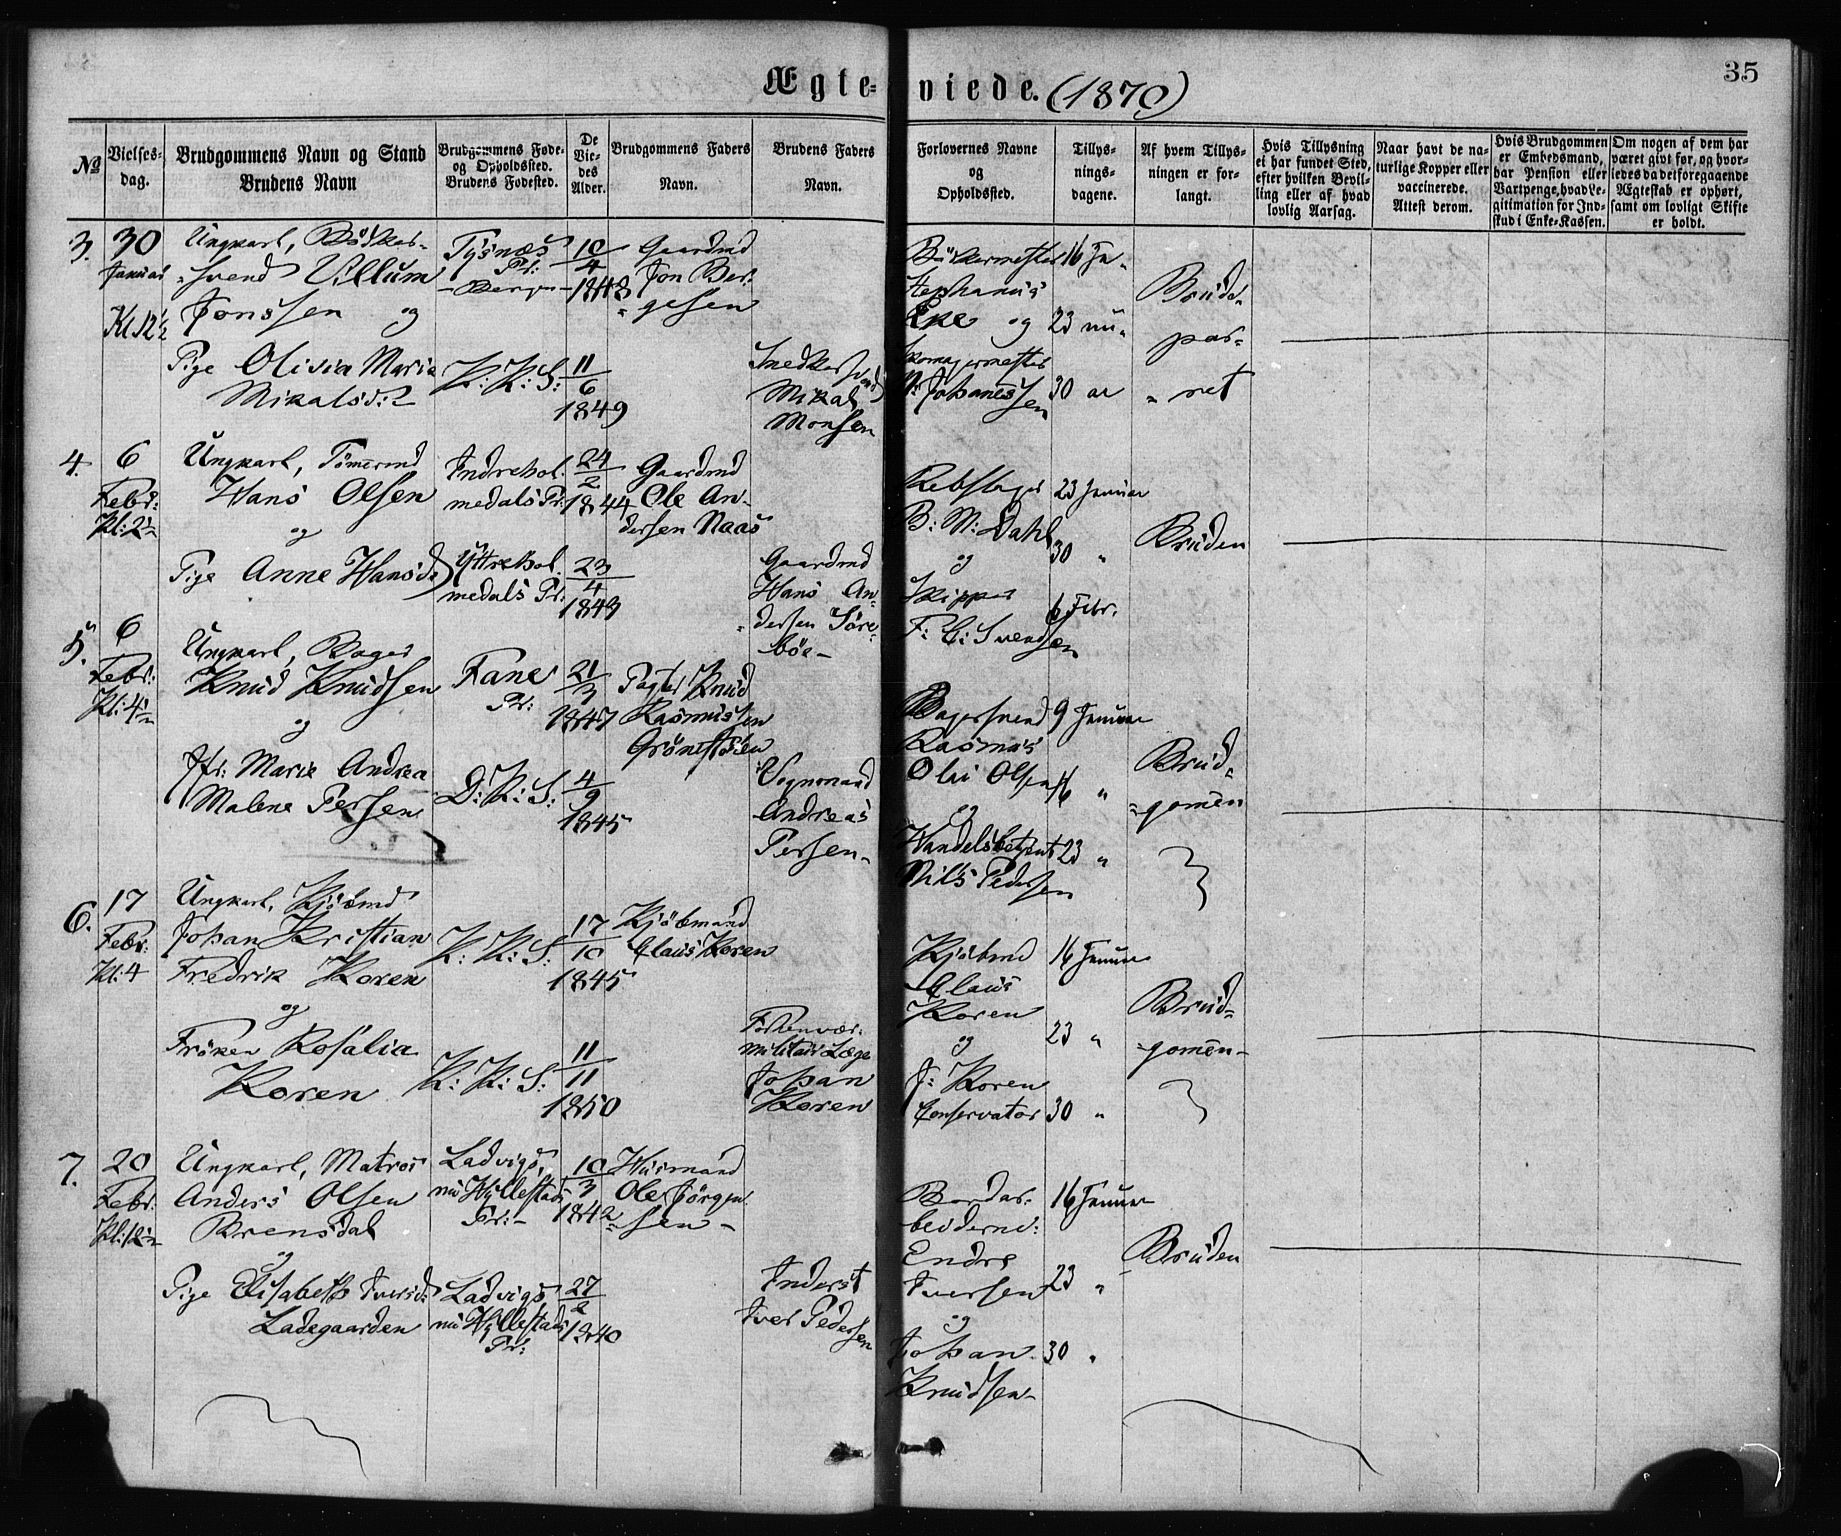 Ægte-viede. (1870)
35
№
Vielses-
dag.
Brudgommens Navn og Stand
Brudens Navn
Brudgommens Føde-
og Opholdssted.
Brudens Fødested.
De
Vie-
des
Alder.
Brudgommens Faders
Navn.
Brudens Faders
Navn.
Forlovernes Navne
og
Opholdssted.
Tillys-
nings-
dagene.
Af hvem Tillys-
ningen er for-
langt.
Hvis Tillysning
ei har fundet Sted,
efter hvilken Bevil-
ling eller af hvad
lovlig Aarsag.
Naar havt de na-
turlige Kopper eller
vaccinerede.
Attest derom.
Hvis Brudgommen
er Embedsmand,
har Pension eller
Vartpenge, hvad Le-
gitimation for Ind-
skud i Enke-Kassen.
Om nogen af dem har
været givt før, og hvor-
ledes da det foregaaende
Ægteskab er ophørt,
samt om lovligt Skifte
er holdt.
3.
30
Januar
Kl 12½
Ungkarl, Bödker-
svend Villum
Jonssen og
Pige Olivia Marie
Mikalsd:
Tysnæs
Pr:
- Bergen -
K: K: S:
10/4
1843
11/6
1849
Gaardmd
Jon Ber-
gesen
Snedkersvend
Mikal
Monsen
Bödkermester
Stephanus
Eke og
Skomagermester
N: Johannessen
16 Ja-
23 nu-
30 ar
Brude-
par-
ret
4.
6
Febr:
Kl: 2½
Ungkarl, Tömermd
Hans Olsen
og
Pige Anne Hansd:
Indrehol-
medals Pr:
Yttrehol-
medals Pr:
24/2
1844
23/4
1843
Gaardmd
Ole An-
dersen Naas
Gaardmd
Hans An-
dersen Söre-
böe -
Rebslager
B: M: Dahl
og
Skipper
F: C: Svendsen
23 Januar
30 "
6 Febr.
Bruden
5.
6
Febr:
Kl: 4½
Ungkarl, Bager
Knud Knudsen
og
Jfr: Marie Andrea
Malene Persen
Fane
Pr:
D: K: S:
21/3
1847
4/9
1845
Pagter Knud
Rasmussen
Grönestölen
Vognmand
Andreas
Persen -
Bagersvend
Rasmus
Olai Olsen
og
Handelsbetjent
Nils Pedersen
9 Januar
16 "
23 "
Brud-
gomen
6.
17
Febr:
Kl: 4
Ungkarl, Kjöbmd
Johan Kristian
Fredrik Koren
og
Fröken Rosalia
Koren
K: K: S:
K: K: S:
17/10
1845
11/11
1850
Kjöbmand
Claus Koren
Forhenvær-
militair Læge
Johan
Koren
Kjöbmd
Claus
Koren
og
J: Koren
Conservator
16 Januar
23 "
30 "
Brud-
gomen -
7.
20
Febr:
Kl: 12½
Ungkarl, Matros
Anders Olsen
Brensdal
og
Pige Elisabeth Iversd:
Ladegaarden
Ladvigs,
nu Hyllestads
Pr: -
Ladvigs
nu Hyllestads
Pr:
10/3
1842
27/2
1840
Husmand
Ole Jörgen-
sen -
Inderst
Iver Pedersen
Bordar-
beiderne:
Endre
Iversen
og
Johan
Knudsen -
16 Januar
23 "
30 "
Bruden